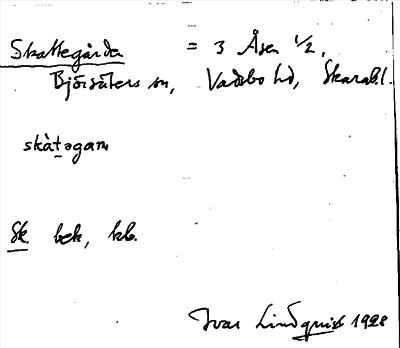 Skattegården = 3 Åsen 1/2,
Björsäters sn, Vadsbo hd, Skarab.l.
skàt̠əgaɳ
Sk. bek, kb.
Ivar Lindquist 1928